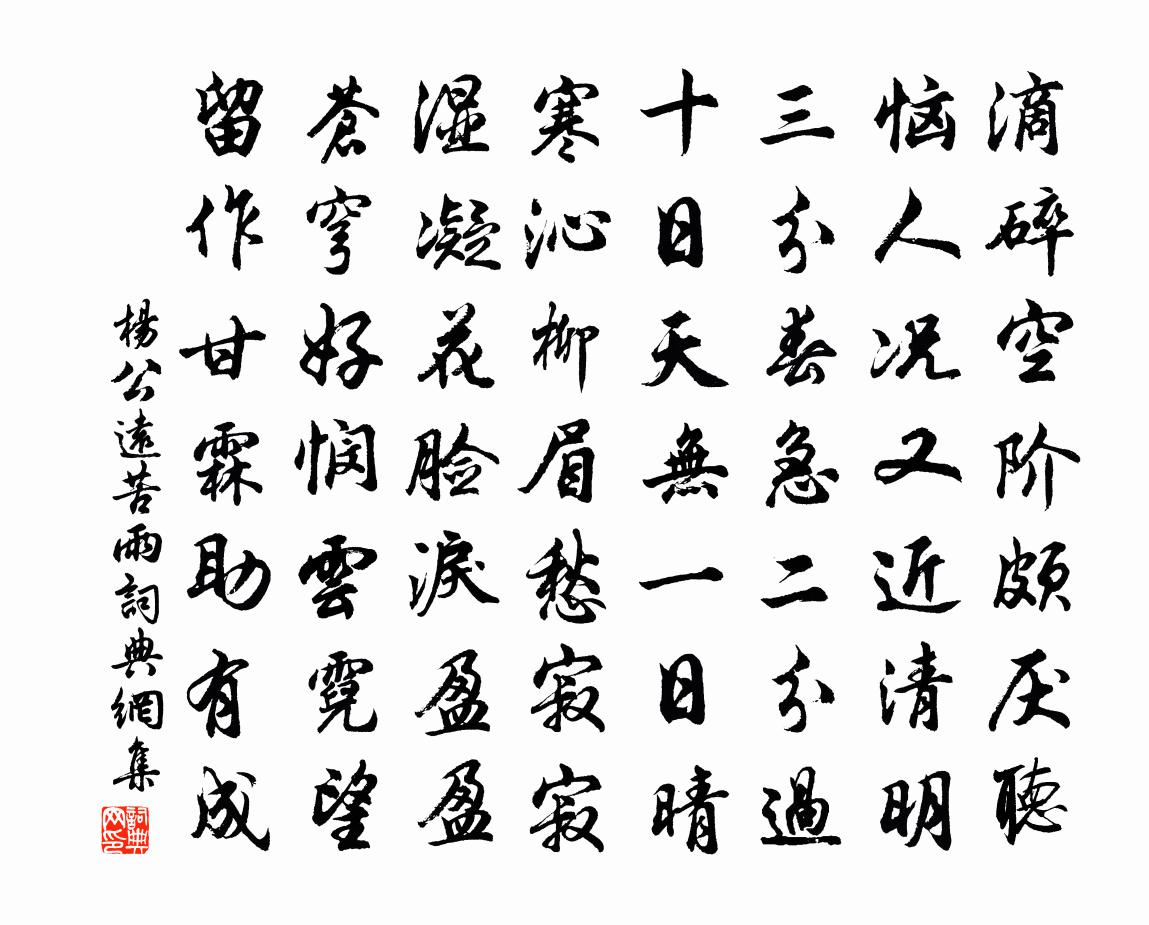 滴碎空阶颇厌聴
恼人况又近清明
三分春急二分過
十日天無一日晴
寒沁柳眉愁寂寂
湿凝花脸淚盈盈
蒼穹好悯雲霓望
留作甘霖助有成
楊公遠苦雨詞典網集
詞典网印